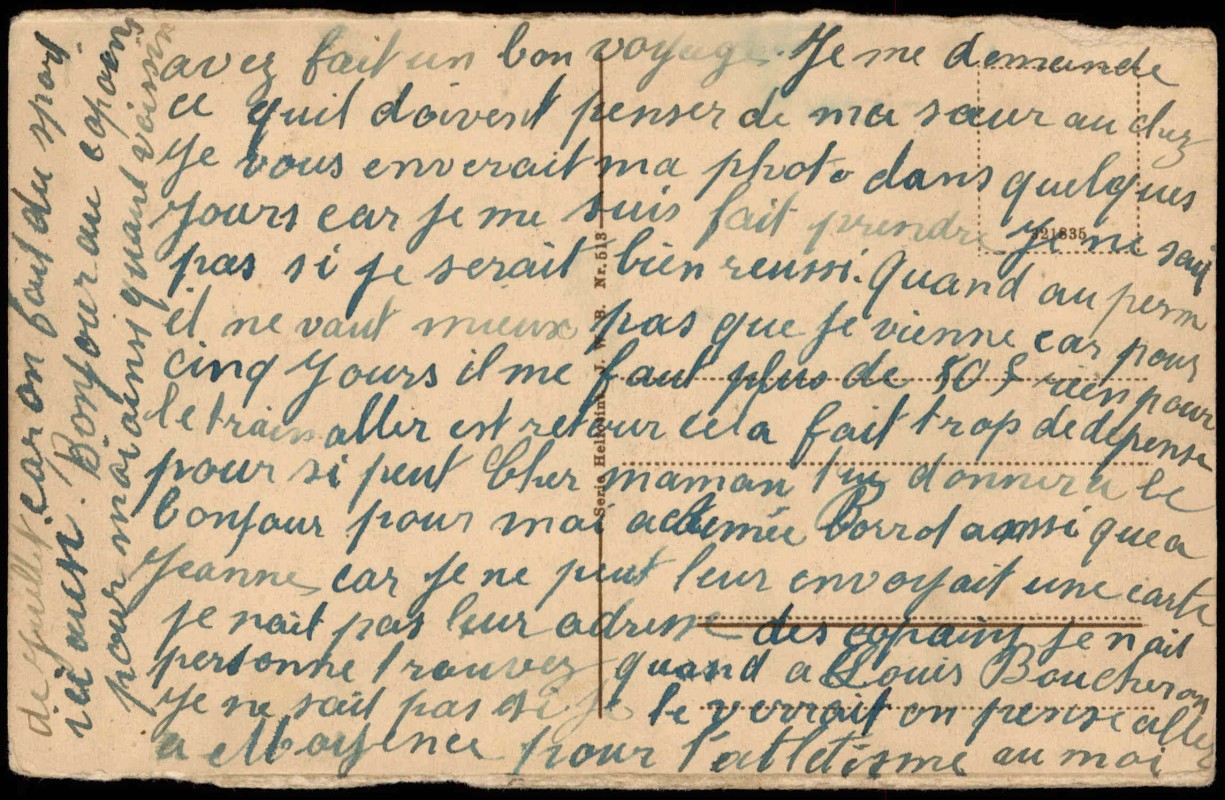 avez fait un bon voyage. Je me demande
ce quil doivent penser de ma sœur au chez
Je vous enverait ma photo dans quelques
Jours car Je me suis fait prendre Je ne sait
pas si je serait bien reussi. Quand au perm
il ne vaut mieux pas que Je vienne car pour
cinq Jours il me faut plus de 50 f rien pour
le train aller est retour cela fait trop de depense
pour si peut Cher maman tu donnera le
bonjour pour moi a Borrot aussi que a
Jeanne car Je ne peut leur envoyait une carte
je nait pas leur adresse des copains Je nait
personne trouvez quand a Louis Boucheron
Je ne sait pas si Je le verrait on pense allez
a Mayence pour l'atletisme au moi
de Juillet car on fait du sport
ici aussi. Bonjour au copains
pour moi ainsi quant voisin
Serie Heliotint J. W. B. Nr. 513
321835